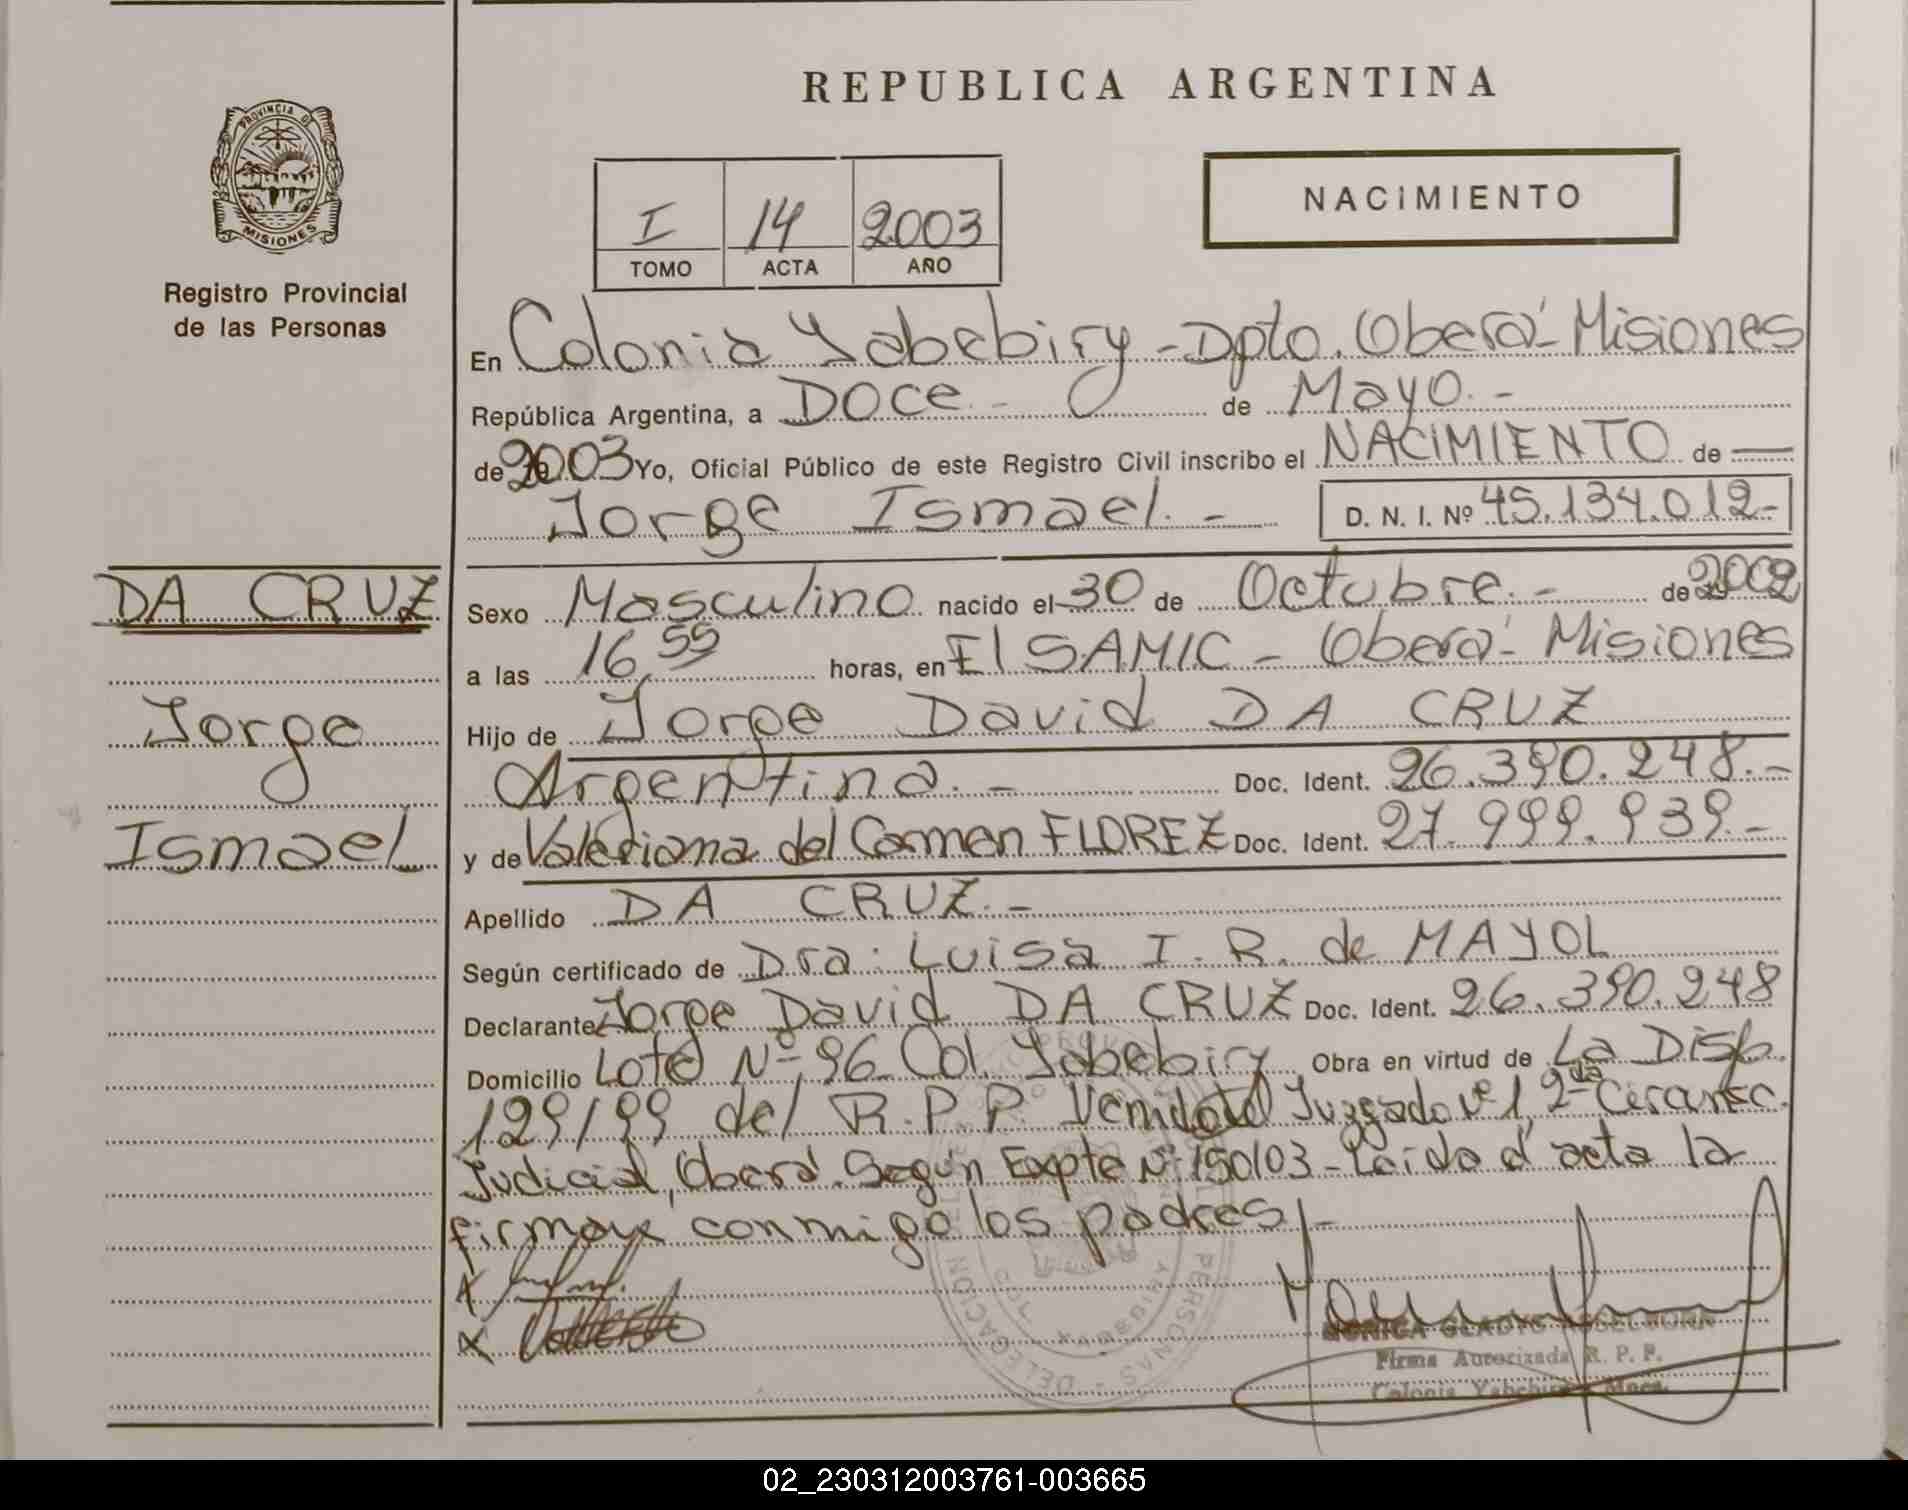 REPUBLICA ARGENTINA
PROVINCIA DE
MISIONES
Registro Provincial
de las Personas
I 14 2003
TOMO ACTA AÑO
NACIMIENTO
En Colonia Yabebiry - Dpto. Oberá - Misiones
República Argentina, a Doce.- de Mayo.-
de 2003 Yo, Oficial Público de este Registro Civil inscribo el NACIMIENTO de
Jorge Ismael.- D. N. I. Nº 45.134.012-
DA CRUZ
Jorge
Ismael
Sexo Masculino nacido el 30 de Octubre.- de 2002
a las 16,55 horas, en El SAMIC - Oberá - Misiones
Hijo de Jorge David DA CRUZ
Argentina.- Doc. Ident. 26.390.248.-
y de Valeriana del Carmen FLOREZ Doc. Ident. 27.999.939.-
Apellido DA CRUZ.-
Según certificado de Dra. Luisa I. R. de MAYOL
Declarante Jorge David DA CRUZ Doc. Ident. 26.390.248
Domicilio Lote Nº 96 Col. Yabebiry Obra en virtud de La Disp.
129/99 del R.P.P. Juzgado Nº 1, 2da Circunsc.
Judicial, Oberá. Según Expte Nº 150/03 - Leida el acta la
firman conmigo los padres/-
X
X
DELEGACION
PERSONAS
MONICA GLADYS
Firma Autorizada R. P. P.
Colonia Yabebiry - Mnes.
02_230312003761-003665